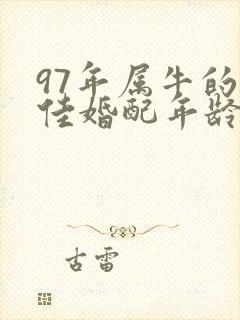 97年属牛的
佳婚配年龄
古雷